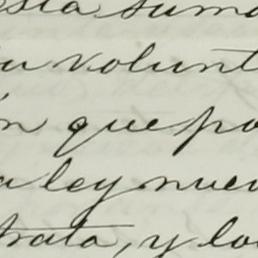 esta suma
su volunt
n que po
a ley nuev
trata, y lo